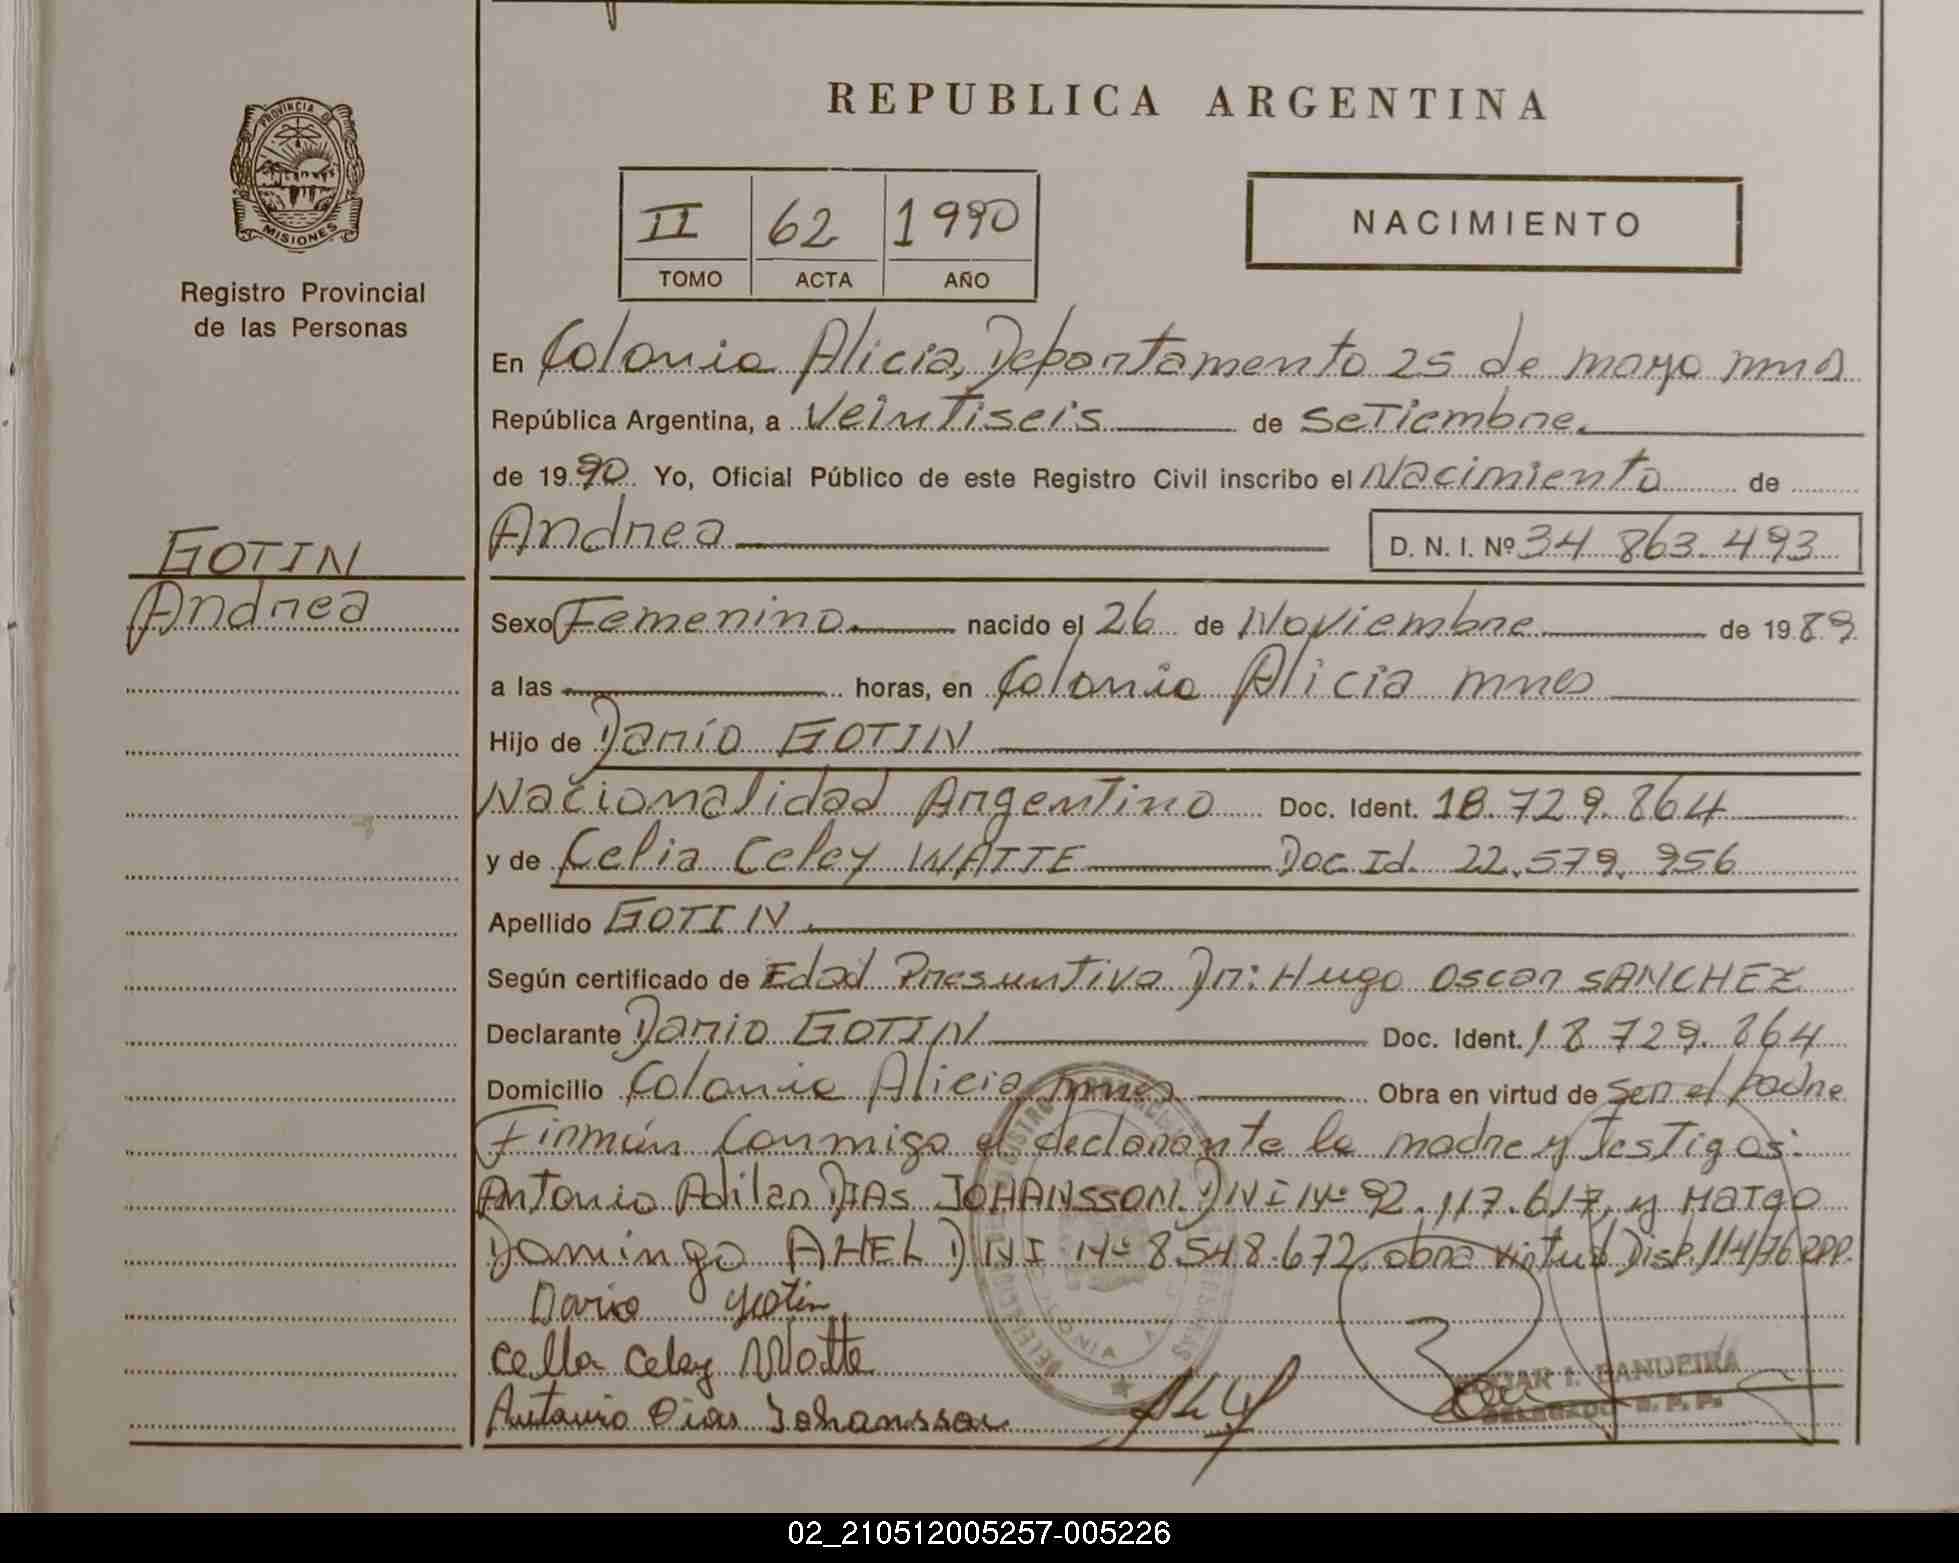 REPUBLICA ARGENTINA
PROVINCIA DE
MISIONES
Registro Provincial
de las Personas
II 62 1990
TOMO ACTA AÑO
NACIMIENTO
En Colonia Alicia, Departamento 25 de mayo mnes
República Argentina, a Veintiseis de Setiembre.
de 1990 Yo, Oficial Público de este Registro Civil inscribo el Nacimiento de
Andrea D. N. I. Nº 34.863.493
GOTIN
Andrea
Sexo Femenino. nacido el 26 de Noviembre de 1989
a las horas, en Colonia Alicia mnes
Hijo de Darío GOTIN
Nacionalidad Argentino Doc. Ident. 18.729.864
y de Celia Celey WATTE Doc Id. 22.579.956
Apellido GOTIN.
Según certificado de Edad Presuntiva Dr: Hugo Oscar SANCHEZ
Declarante Dario GOTIN Doc. Ident. 18.729.864
Domicilio Colonia Alicia mnes Obra en virtud de ser el padre
Firmán conmigo el declarante la madre y testigos:
Antonio Adilar DIAS JOHANSSON. DNI Nº 92.117.617, y Margo
Domingo AHEL DNI Nº 8.548.672. obra virtud Disp. 114/76 RPP.
Dario Gotin
Celia Celey Watte
Antonio Dias Johansson
I. BANDEIRA
DELEGADO R. P. P.
02_210512005257-005226